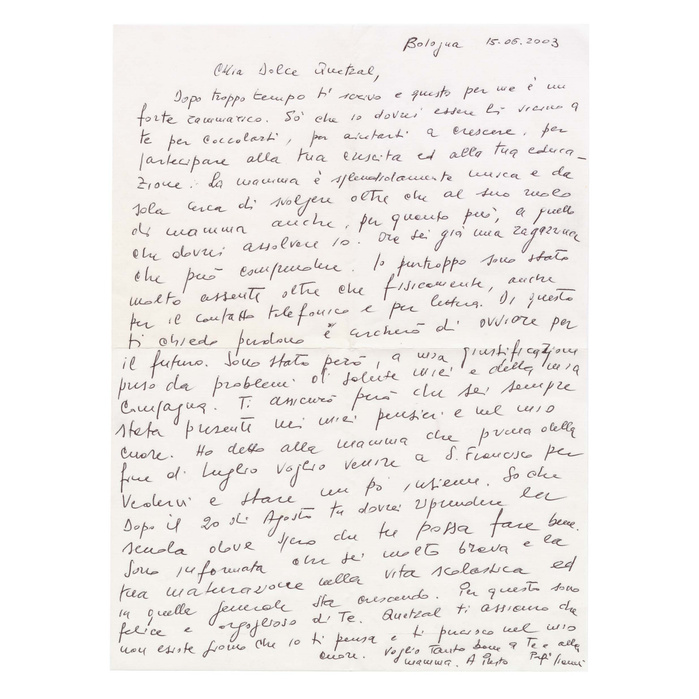 Bologna 15.06.2003
Mia Dolce Quetzal,
Dopo troppo tempo ti scrivo e questo per me è un
forte rammarico. Sò che io dovrei essere lì vicino a
te per coccolarti, per aiutarti a crescere, per
partecipare alla tua crescita ed alla tua educa-
zione. La mamma è splendidamente unica e da
sola cerca di svolgere oltre che al suo ruolo
di mamma anche, per quanto può, a quello
che dovrei assolvere io. Ora sei già una ragazzina
che può comprendere. Io purtroppo sono stato
molto assente oltre che fisicamente, anche
per il contatto telefonico e per lettera. Di questo
ti chiedo perdono e cercherò di ovviare per
il futuro. Sono stato però, a mia giustificazione
preso da problemi di salute miei e della mia
compagna. Ti assicuro però che sei sempre
stata presente nei miei pensieri e nel mio
cuore. Ho detto alla mamma che prima della
fine di Luglio voglio venire a S. Francisco per
vedervi e stare un pò insieme. So che
Dopo il 20 di Agosto tu dovrai riprendere la
scuola dove spero che tu possa fare bene.
Sono informato che sei molto brava e la
tua maturazione nella vita scolastica ed
in quella generale sta crescendo. Per questo sono
felice e orgoglioso di Te. Quetzal ti assicuro che
non esiste giorno che io ti pensa e ti nel mio
cuore. Voglio Tanto bene a Te e alla
mamma. A Presto